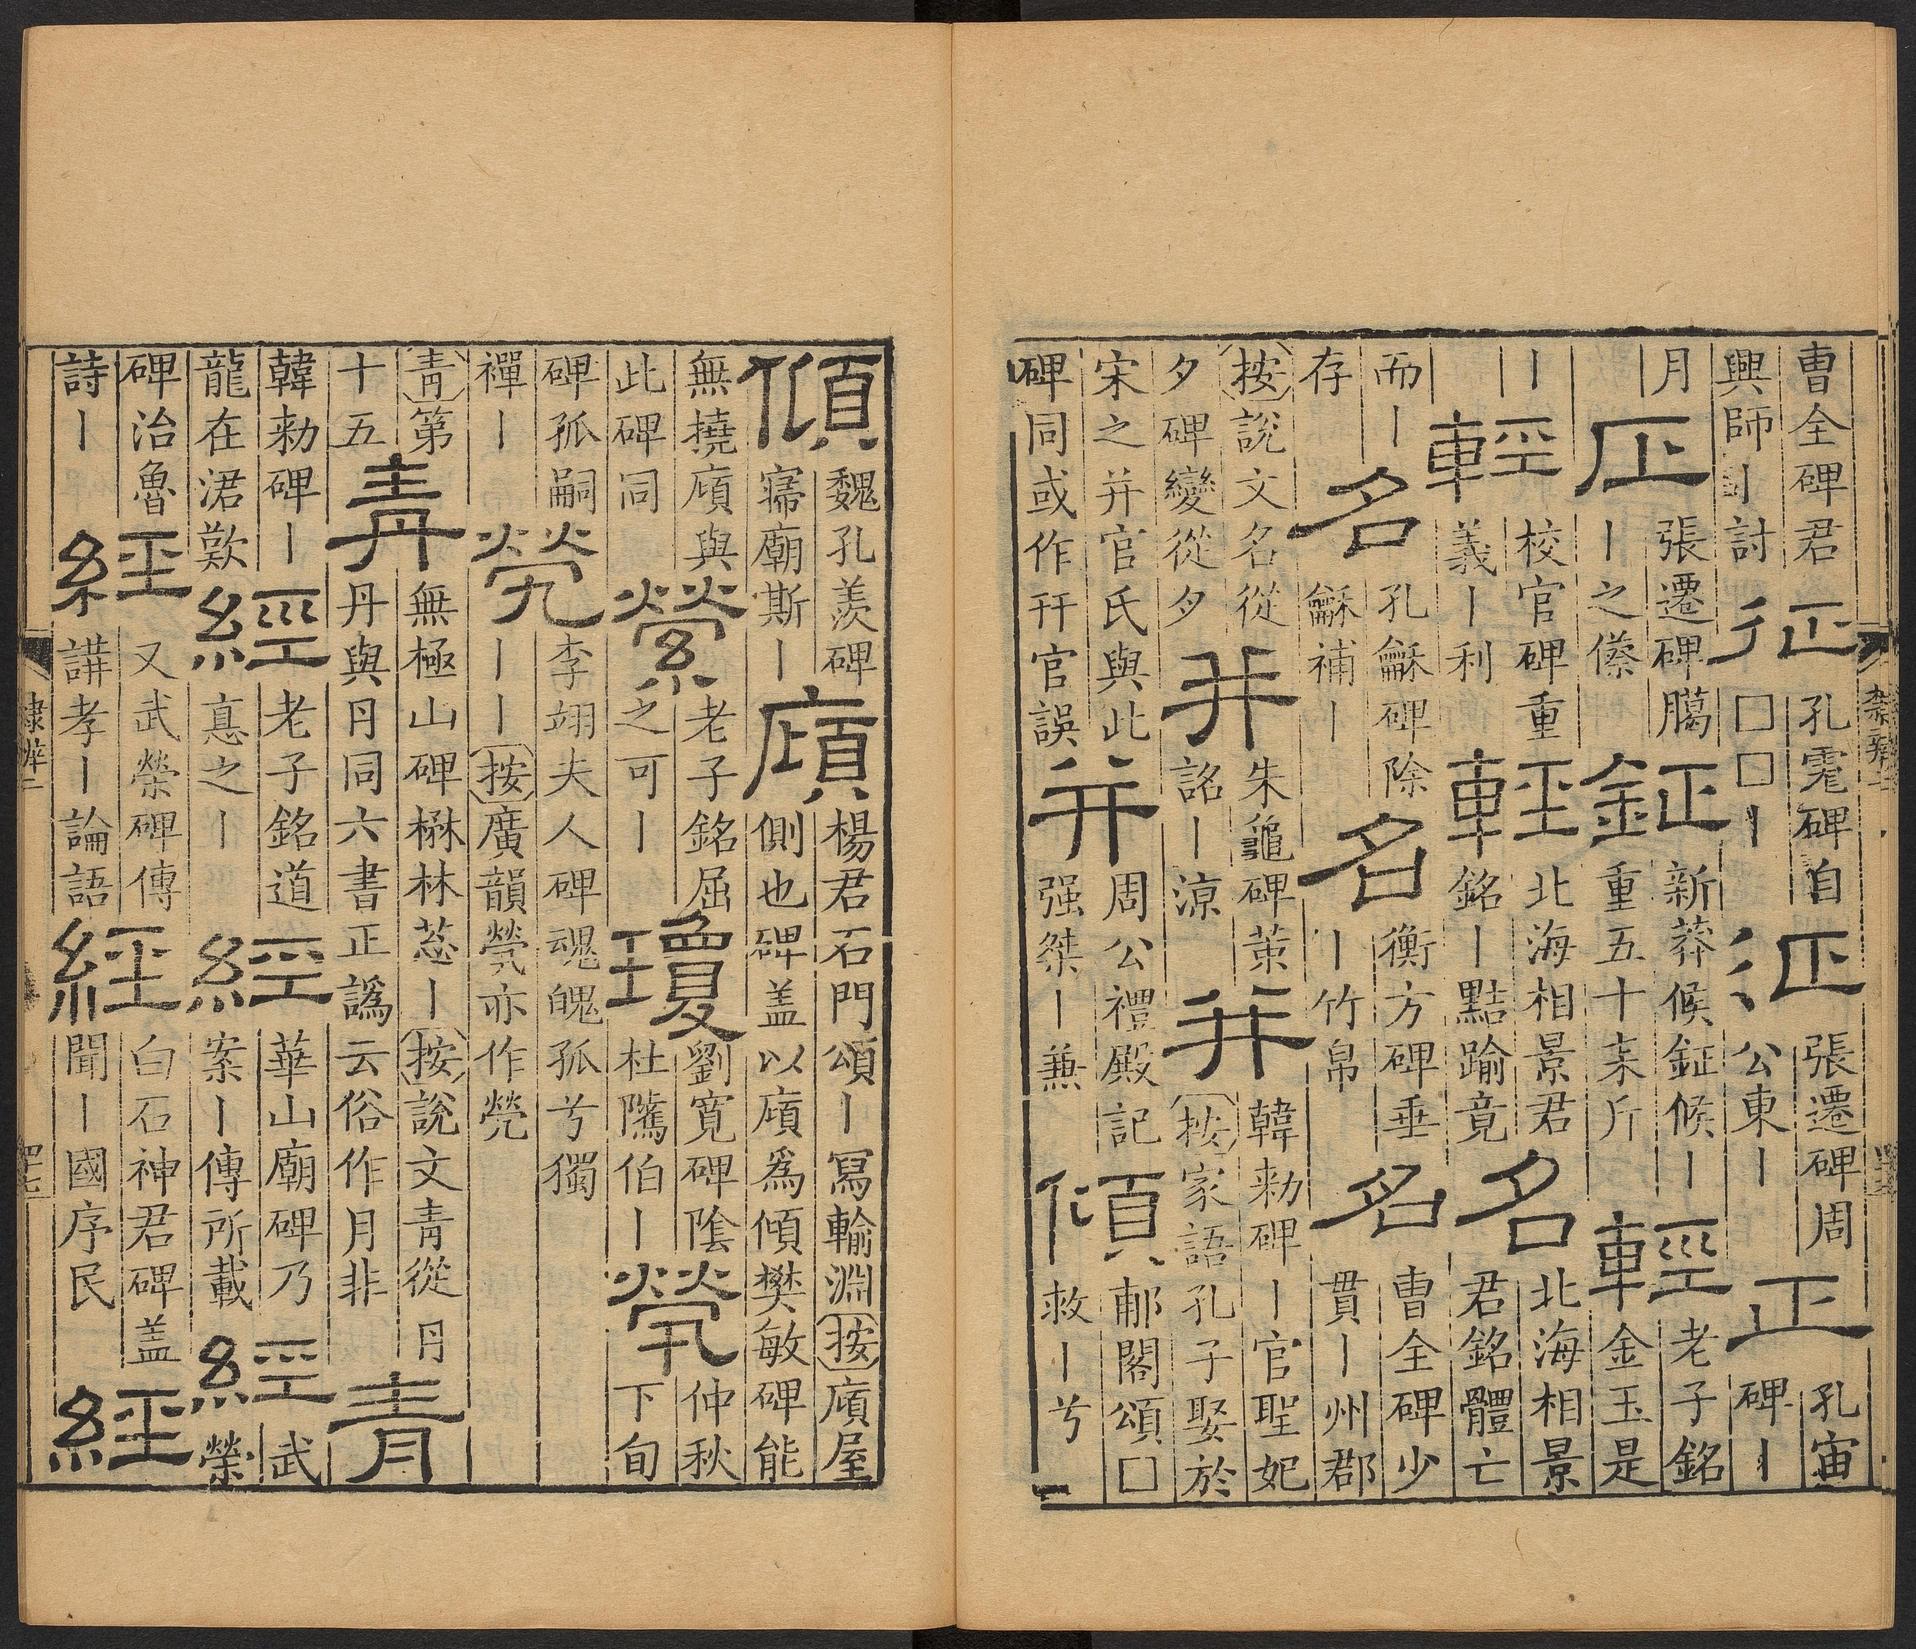 曹全碑君
興師丨討
征
孔碑自
□□丨
征
張遷碑周
公東丨
正
孔宙
碑丨
月
正
張遷碑臈
丨之
鉦
新莽候鉦候丨
重五十桼斤
輕
老子銘
金玉是
丨
輕
校官碑重
義丨利
輕
北海相景君
銘丨點踰竟
名
北海相景
君銘體亡
而丨
存
名
孔龢碑除
龢補丨
名
衡方碑垂
丨竹帛
名
曹全碑少
貫丨州郡
按說文名從
夕碑變從夕
幷
朱龜碑策
詺丨涼
幷
韓勑碑丨官聖妃
按家語孔子娶於
宋之并官氏與此
碑同或作幵官誤
并
周公禮殿記
强桀丨兼
傾
郙閣頌□
救丨兮
傾
魏孔羨碑
寢廟斯丨
廎
楊君石門頌丨寫輸淵按廎屋
側也碑盖以廎爲傾樊敏碑能
無撓廎與
此碑同
縈
老子銘屈
之可丨
瓊
劉寬碑陰
杜隲伯丨
煢
仲秋
下旬
碑孤嗣
禪丨
焭
李翊夫人碑魂魄孤兮獨
丨丨丨按廣韻煢亦作焭
靑第
十五
靑
無極山碑楙林葱丨按說文青從丹
丹與円同六書正譌云俗作月非
青
韓勑碑丨
龍在涒歎
經
老子銘道
悳之丨
經
華山廟碑乃
案丨傳所載
經
武
榮
碑治魯
詩丨
經
又武榮碑傳
講孝丨論語
經
白石神君碑盖
聞丨國序民
經